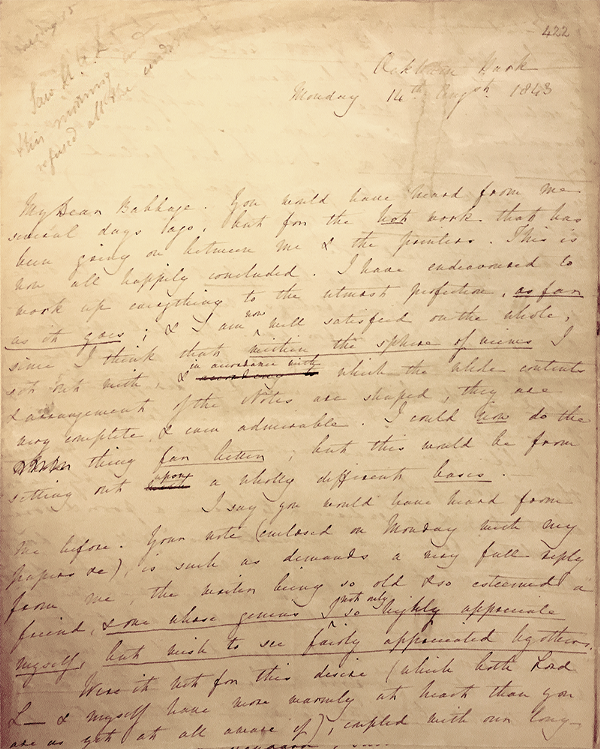 422
Saw A. A. L.
this morning &
refused all the conditions
Ockham Park
Monday 14th Augst. 1843
My Dear Babbage. You would have heard from me
several days ago, but for the hot work that has
been going on between me & the printers. This is
now all happily concluded. I have endeavoured to
work up everything to the utmost perfection, as far
as it goes; & I am now well satisfied on the whole,
since I think that within the sphere of views I
set out with, & in accordance with which the whole contents
& arrangement of the Notes are shaped, they are
very complete, & even admirable. I could now do the
thing far better; but this would be from
setting out upon a wholly different basis.
I say you would have heard from
me before. Your note (enclosed on Monday with my
papers &c), is such as demands a very full reply
from me, the writer being so old & so esteemed a
friend, & one whose genius I not only so highly appreciate
myself, but wish to see fairly appreciated by others.
Were it not for this desire (which both Lord
L— & myself have more warmly at heart than you
are as yet at all aware of), coupled with our long-